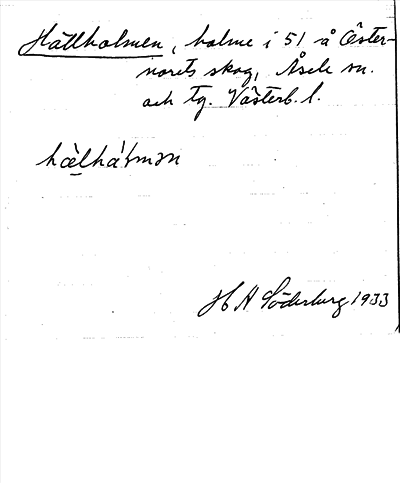 Hällholmen, holme i 51 å Öster-
norets skog, Åsele sn.
och tg. Västerb. l.
hæ̀lhål̀mən
H A Söderburg 1933